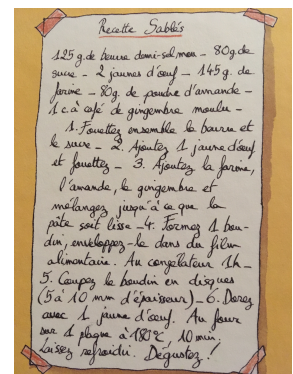 Recette Sablés
125 g. de beurre demi-sel mou _ 80g. de
sucre _ 2 jaunes d'œuf _ 145 g. de
farine _ 80g. de poudre d'amande _
1 c.à café de gingembre moulu _
1. Fouettez ensemble le beurre et
le sucre _ 2. Ajoutez 1 jaune d'œuf
et fouettez _ 3. Ajoutez la farine,
l'amande, le gingembre et
mélangez jusqu'à ce que la
pâte soit lisse _ 4. Formez 1 bou-
din, enveloppez-le dans du film
alimentaire. Au congélateur 1h _
5. Coupez le boudin en disques
(5 à 10 mm d'épaisseur) _ 6. Dorez
avec 1 jaune d'œuf. Au four
sur 1 plaque à 180°C, 10 min.
Laissez refroidir. Dégustez !